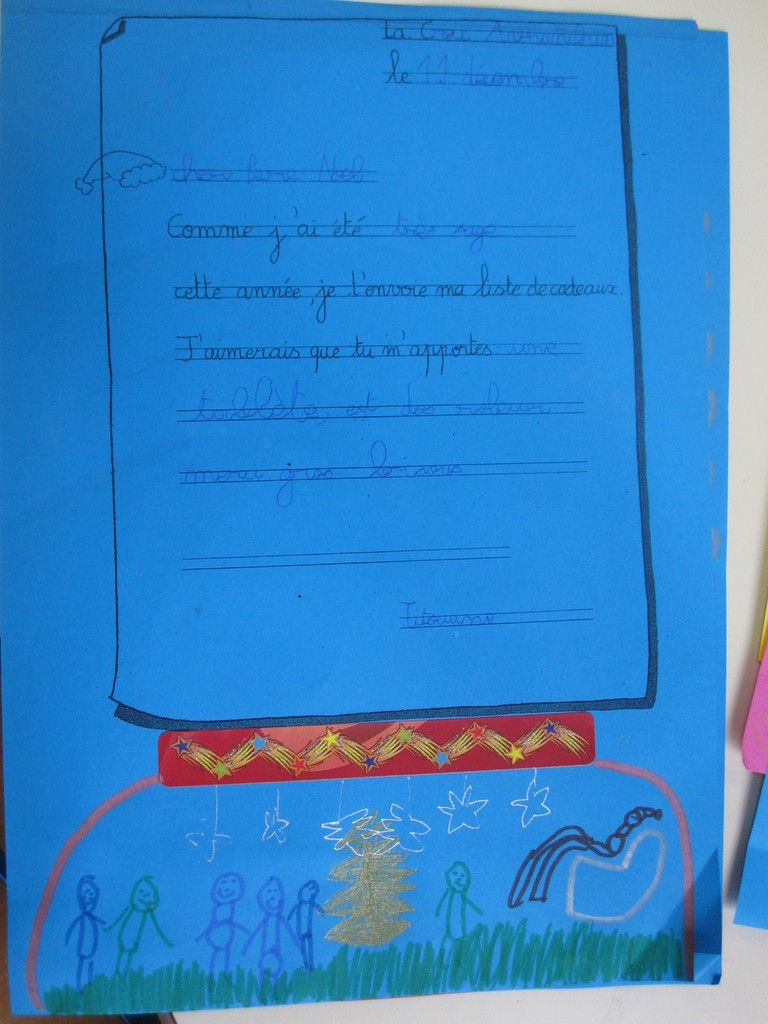 La Croix Avranchin
le 11 décembre
cher Père Noël
Comme j'ai été très sage
cette année, je t'envoie ma liste de cadeaux.
J'aimerais que tu m'apportes une
tablète, est des
merci gros bisous